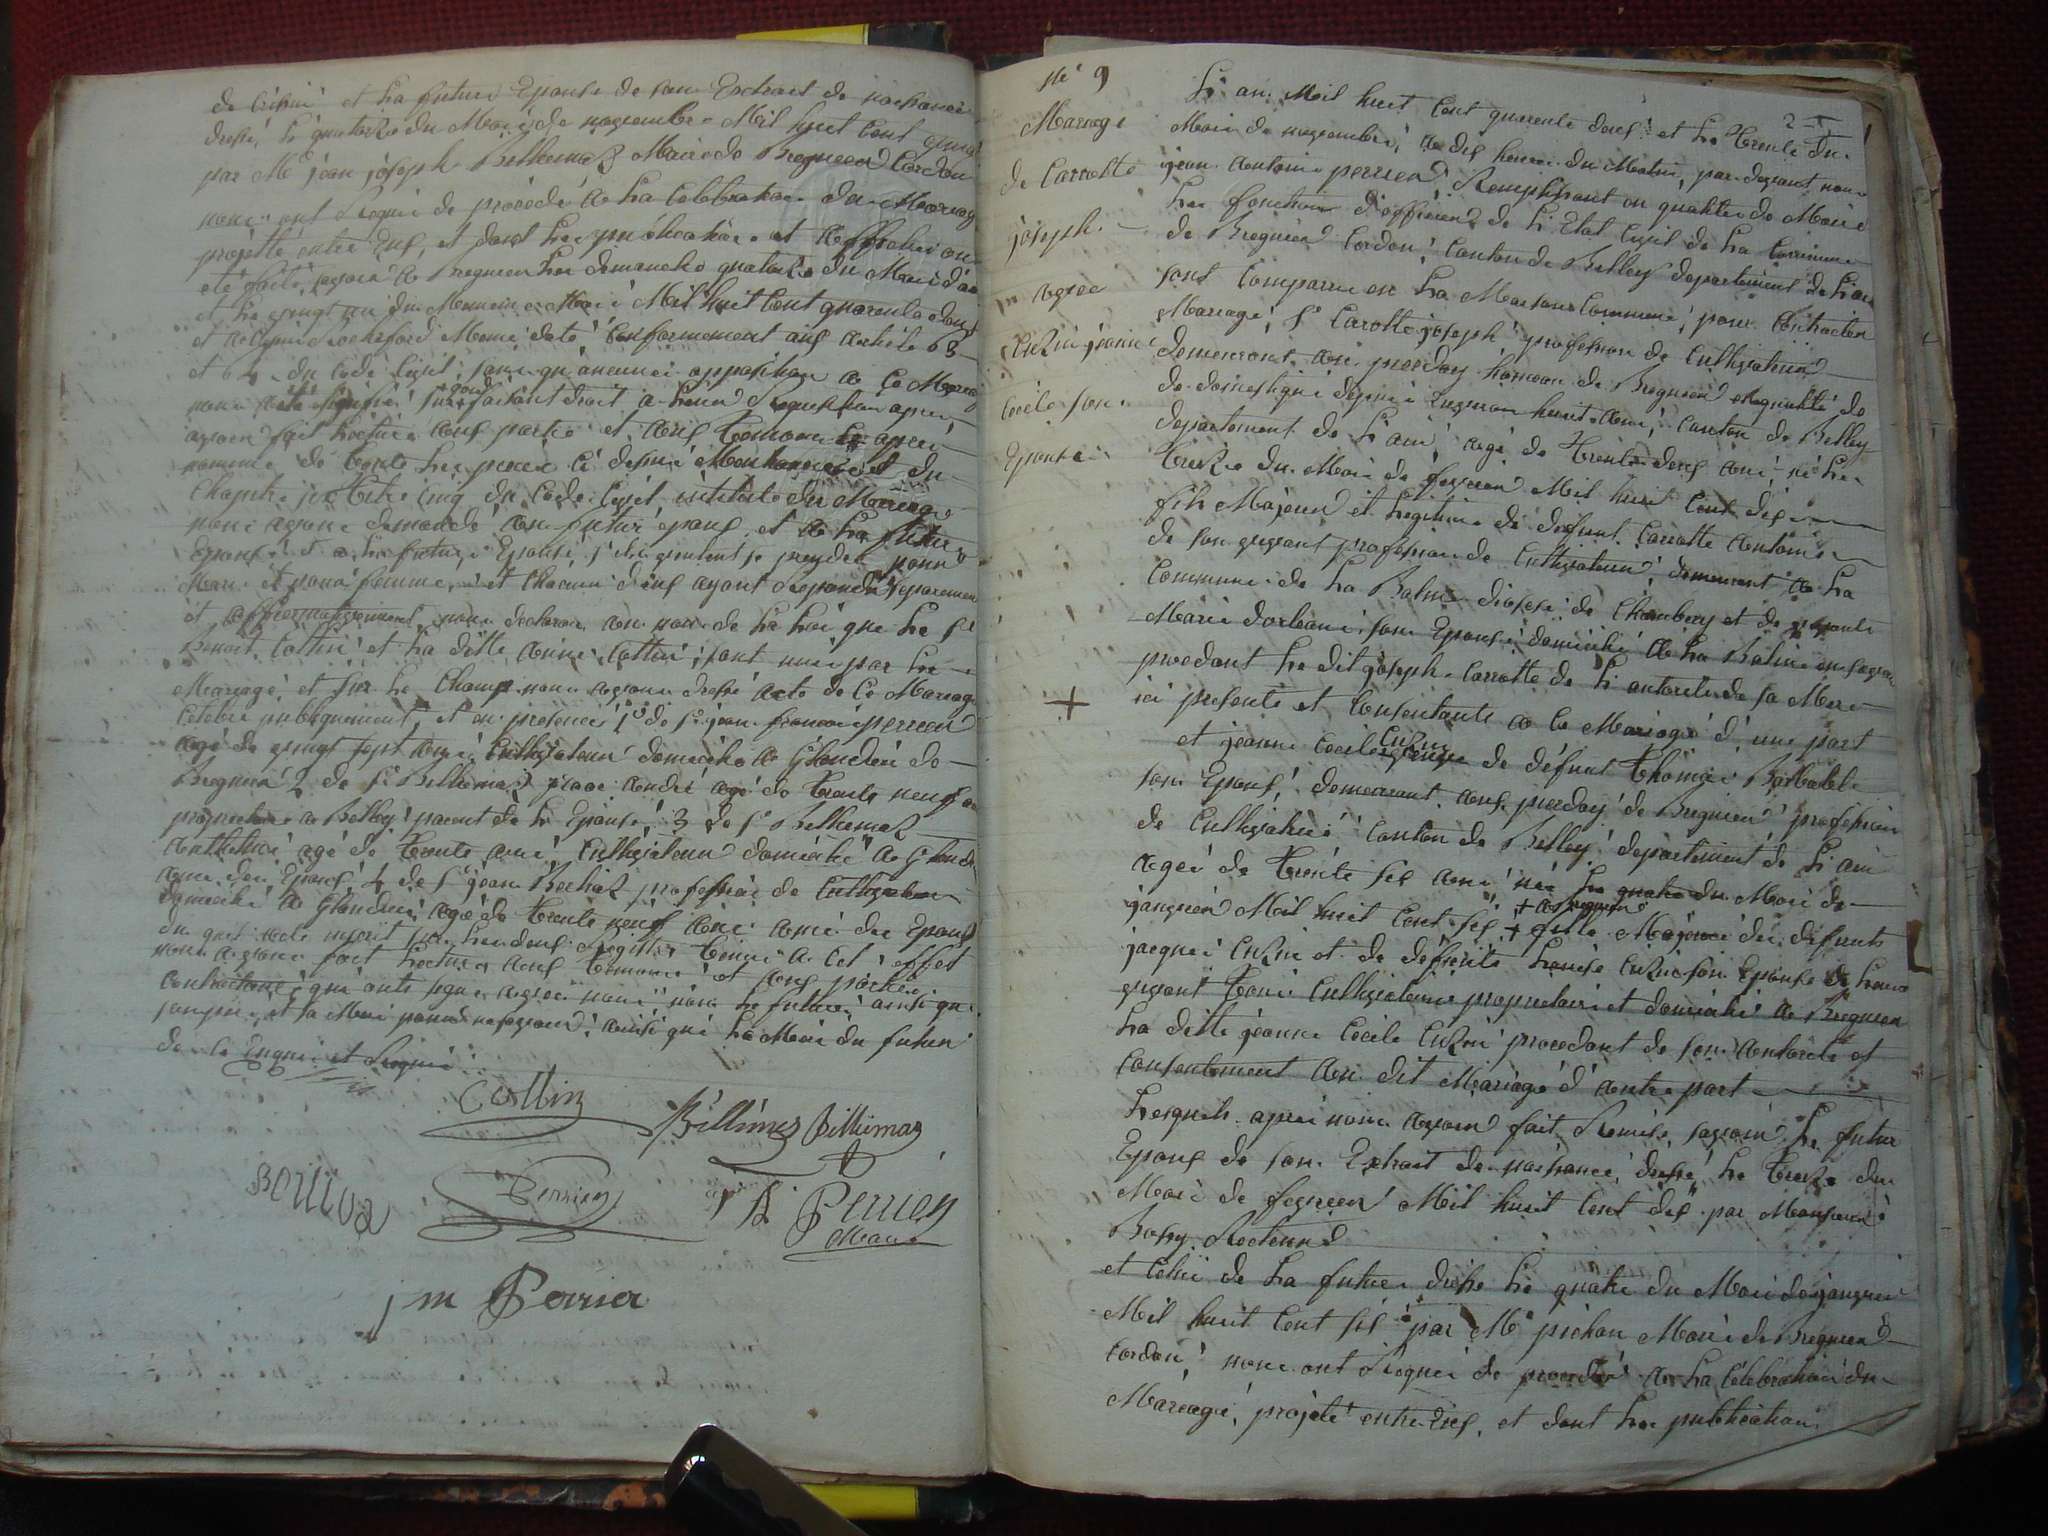 de lui et la future Epouse de son Extrait de naissance
dressé le quatorze du Mois de novembre Mil huit Cent
par Me jean joseph Billiemaz Maire de Bregnier Cordon
nous ont Requi de procédé a la Celebration du Mariage
projetté entre Eux, et dont les publications et affiches on
été faite, avoir a Bregnier les dimanche quatorze du Mois d'
et le vingt un du Meme Mois Mil huit Cent quarente deux
et Rocheford Meme date Conformement aux article 63
et 64 du Code Civil; sans qu'aucune opposition a Ce Mariage
nous aite signifié faisant droit a leur Requisition apres
avoir fait lecture aux partie et aux temoins Ci apres
nommé de toute les pieces ci dessu Mentionné et du
Chapitre six titre cinq du Code Civil intitulé du Mariage
nous avons demandé au futur epoux et a la future
Epouse s'ils veulent se prendre pour
Mari et pour femme, et Chacun d'eux ayant Repondu separemen
et affirmativement, nous declaron au nom de la loi que le sr
Benoit Cottin et la ditte Anne Cottin; sont unie par le
Mariage, et sur le Champ nous avons dressé acte de Ce Mariage
Celebré publiquement, et en presence 1º de sr jean françoi perrier
agé de vingt sept ans Cultivateur domicilié a Glandieu de
Bregnier 2 de sr Billiemaz andré agé de trente neuf an
proprietaire a Belley parent de l'Epouse, 3 de sr Billiemaz
Anthelme agé de trente ans, Cultivateur domicilié a Glandieu
ami des Epoux, 4 de sr jean Bochet profession de Cultivateur
domicilié a Glandieu, agé de trente neuf ans ami des Epoux
du quel acte inscrit sur les deux Registre tenu a Cet effet
nous avons fait lecture aux temoins et aux parties
Contractante, qui onts signé avec nous non la future ainsi que
son pere, et sa Mere pour ne savoir, ainsi que la Mere du futur
de Ce Enquis et Requi
Cottin
Billiemaz Billiemaz
Perrier
Perrier
Maire
j m Perrier
No 9
Mariage
de Carrotte
joseph
avec
Cuzin jeanne
Cecile son
Epouse
2
L'an Mil huit Cent quarente deux et le trente du
Mois de novembre, a dix heures du Matin, par devant nous
jean Antoine perrier, Remplissant en qualité de Maire
les fonctions d'officier de l'Etat Civil de la Commune
de Bregnier Cordon, Canton de Belley departement de l'ain
sont Comparu en la Maison Commune, pour Contracter
Mariage, sr Carotte joseph profession de Cultivateur
demeurant au hameau de Bregnier en qualité de
de domestique depuis Environ huit ans, Canton de Belley
departement de l'ain agé de trente deux ans, né le
treize du Mois de fevrier Mil huit Cent dix
fils Majeur et legitime de defunt Carrotte Antoine
de son vivant profession de Cultivateur, demeurant a la
Commune de la Balme diocese de Chambery et de
Marie son Epouse domicilié a la Balme en savoie
procedant le dit joseph Carrotte de l'autorité de sa Mere
+
ici presente et Consentante a Ce Mariage d'une part
et jeanne Cecile Cuzin veuve de défunt thomas
son Epoux, demeurant aux de Bregnier profession
de Cultivatrice Canton de Belley departement de l'ain
agée de trente six ans née le quatre du Mois de
+ a Bregnier
janvier Mil huit Cent six + fille Majeure des defunts
jacques Cuzin et de défunte Cuzin son Epouse de leurs
vivant tous Cultivateurs proprietaire et domicilié a Bregnier
la ditte jeanne Cecile Cuzin procedant de son autorité et
Consentement au dit Mariage d'autre part
Lesquels apres nous avoir fait Remise, savoir le futur
Epoux de son Extrait de naissance dressé le treize du
Mois de fevrier Mil huit Cent dix par Monsieur
Recteur
et Celui de la future dresse le quatre du Mois de janvier
Mil huit Cent six par Me pichon Maire de Bregnier
Cordon, nous ont Requi de procédé a la Célébration du
Mariage, projeté entre Eux, et dont les publication